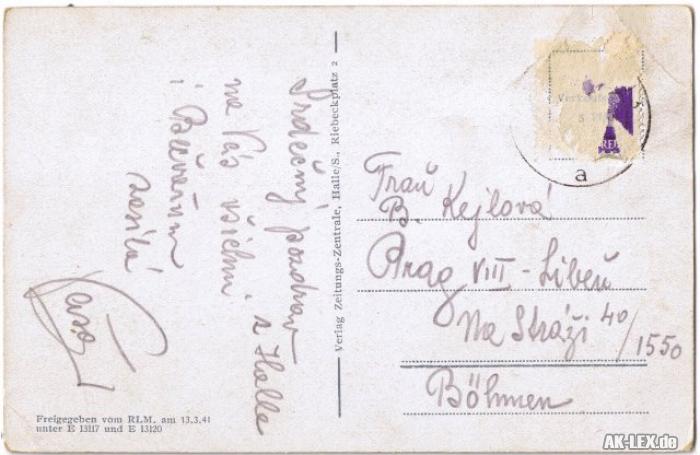 Srdečný pozdrav
z Halle
na Vás všichni
i
zasílá
Verlag Zeitungs-Zentrale, Halle/S., Riebeckplatz 2
Frau
B. Kejlová
Prag VIII - Libeň
Na Stráži 40/1550
Böhmen
a
Freigegeben vom RLM. am 13.3.41
unter E 13117 und E 13120
AK-LEX.de